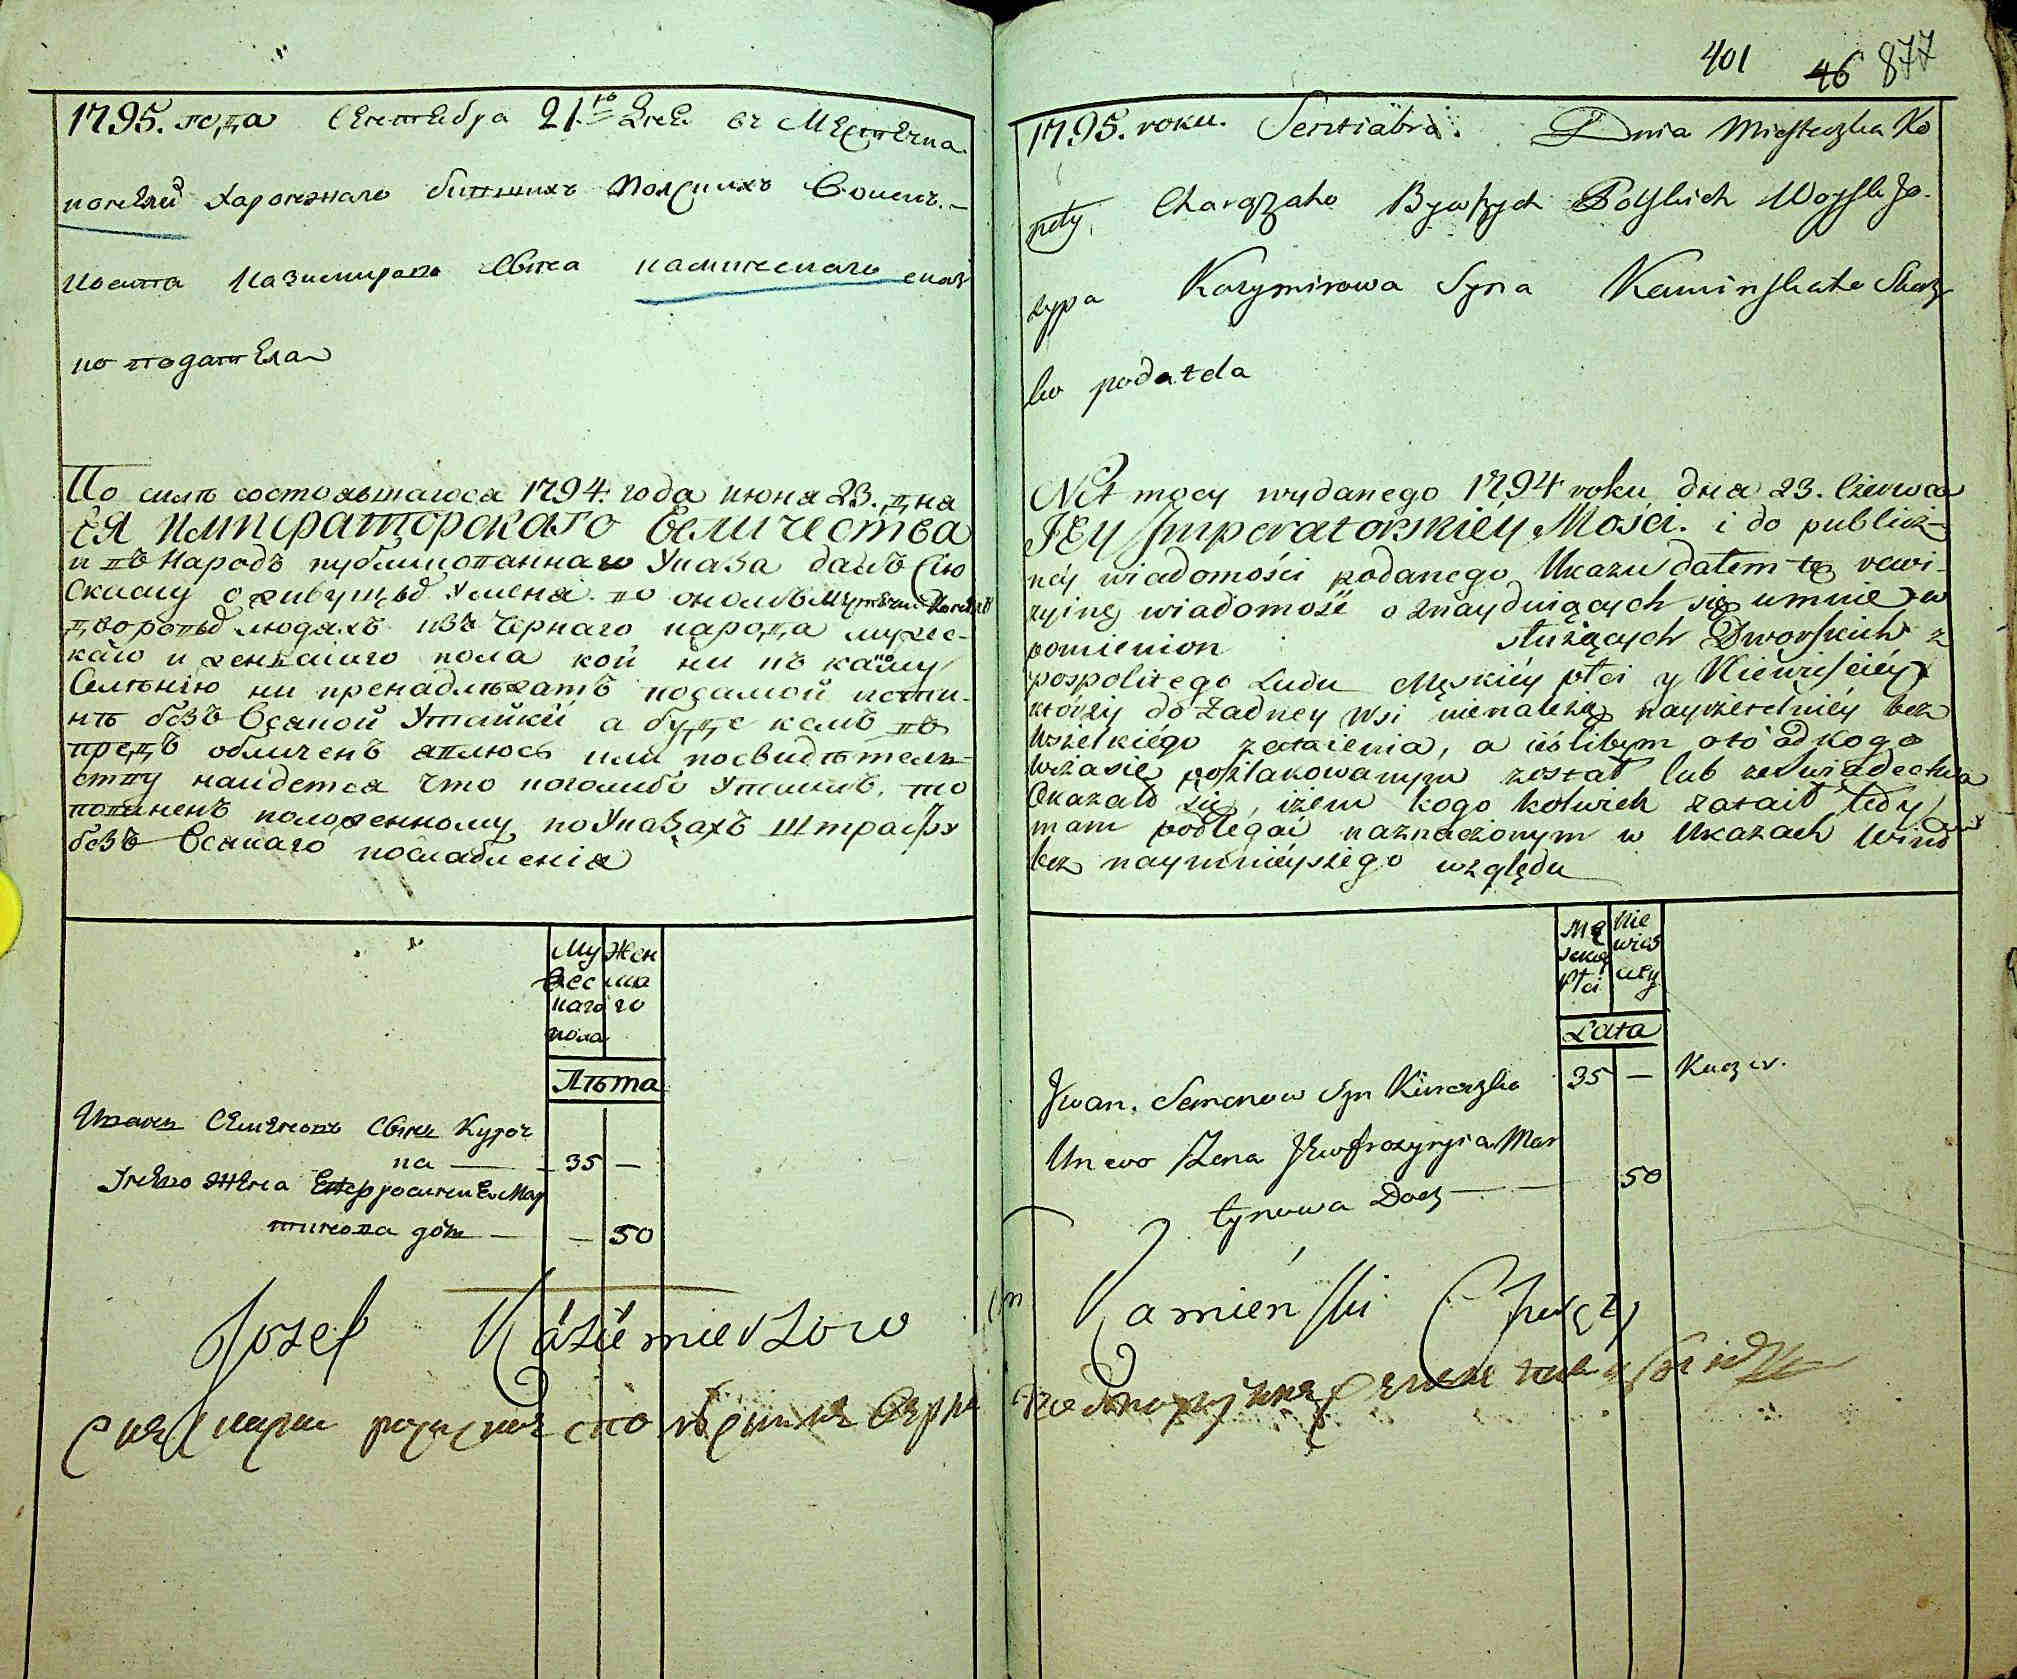 401 46 877
1795. года Сентебра 21го Дне въ Местечка
Харонжаго бившихъ Полскихъ Воискъ.
Иосипа Казимирова Сына Каминскаго сказ
ко подателя
По силѣ состоявшагося 1794. года июня 23. дня
ЕЯ ИМПЕРАТОРСКАГО Величества
и въ Народъ публикованнаго Указа далъ Сію
Скаску о живущыхъ Уменя по околовъ
дворовыхъ людяхъ изъ Чернаго народа мужес-
каго и женскаго пола кои ни къ какому
Селѣнію ни принадлѣжатъ посамой исти-
нѣ безъ Всякой Утайки а буде кемъ въ
предъ обличенъ явлюсь или посвидѣтель-
ству найдется что коголибо Утаилъ, то
повиненъ положенному по Указахъ Штрафу
безъ Всякаго послабленія
Му Жен
жес ска
каго го
пола
Лѣта
Иванъ Семеновъ Сынъ Куроч
ка — 35 —
Унево жена Евфросиния Мар
тинова дочь — — 50
Jozef Kaziemierzow
1795. roku. Sentiabra. Dnia Miasteczka Ko
Charążaho Bywszych Polskich Woysk Jo-
zypa Kazymirowa Syna Kaminskaho Skaz
ko podatela
Na mocy wydanego 1794 roku dnia 23. Czerwca
JEy Imperatorskiey Mości. i do publicz-
ney wiadomości podanego Ukazu dałem tę rewi-
zyiną wiadomość o znayduiących się umnie w
pomienion służących Dworskich z
pospolitego Ludu Męskiey płci y Niewieściey
którzy do żadney wsi nienależą nayrzetelniey bez
wszelkiego zataienia, a ieślibym oto od kogo
wczasie poszlakowanym został lub zeświadectwa
Okazało się, iżem kogo kolwiek zataił tedy
mam podlegać naznaczonym w Ukazach Winom
bez naymnieyszego względu
Mę Nie
skiey wieś
płci ciey
Lata
Jwan. Semenow Syn Kureczka 35 — Kucz er.
Un ewo Żena Jewfrozynyia Mar
tynowa Docz — — 50
Kamieński Chorąży